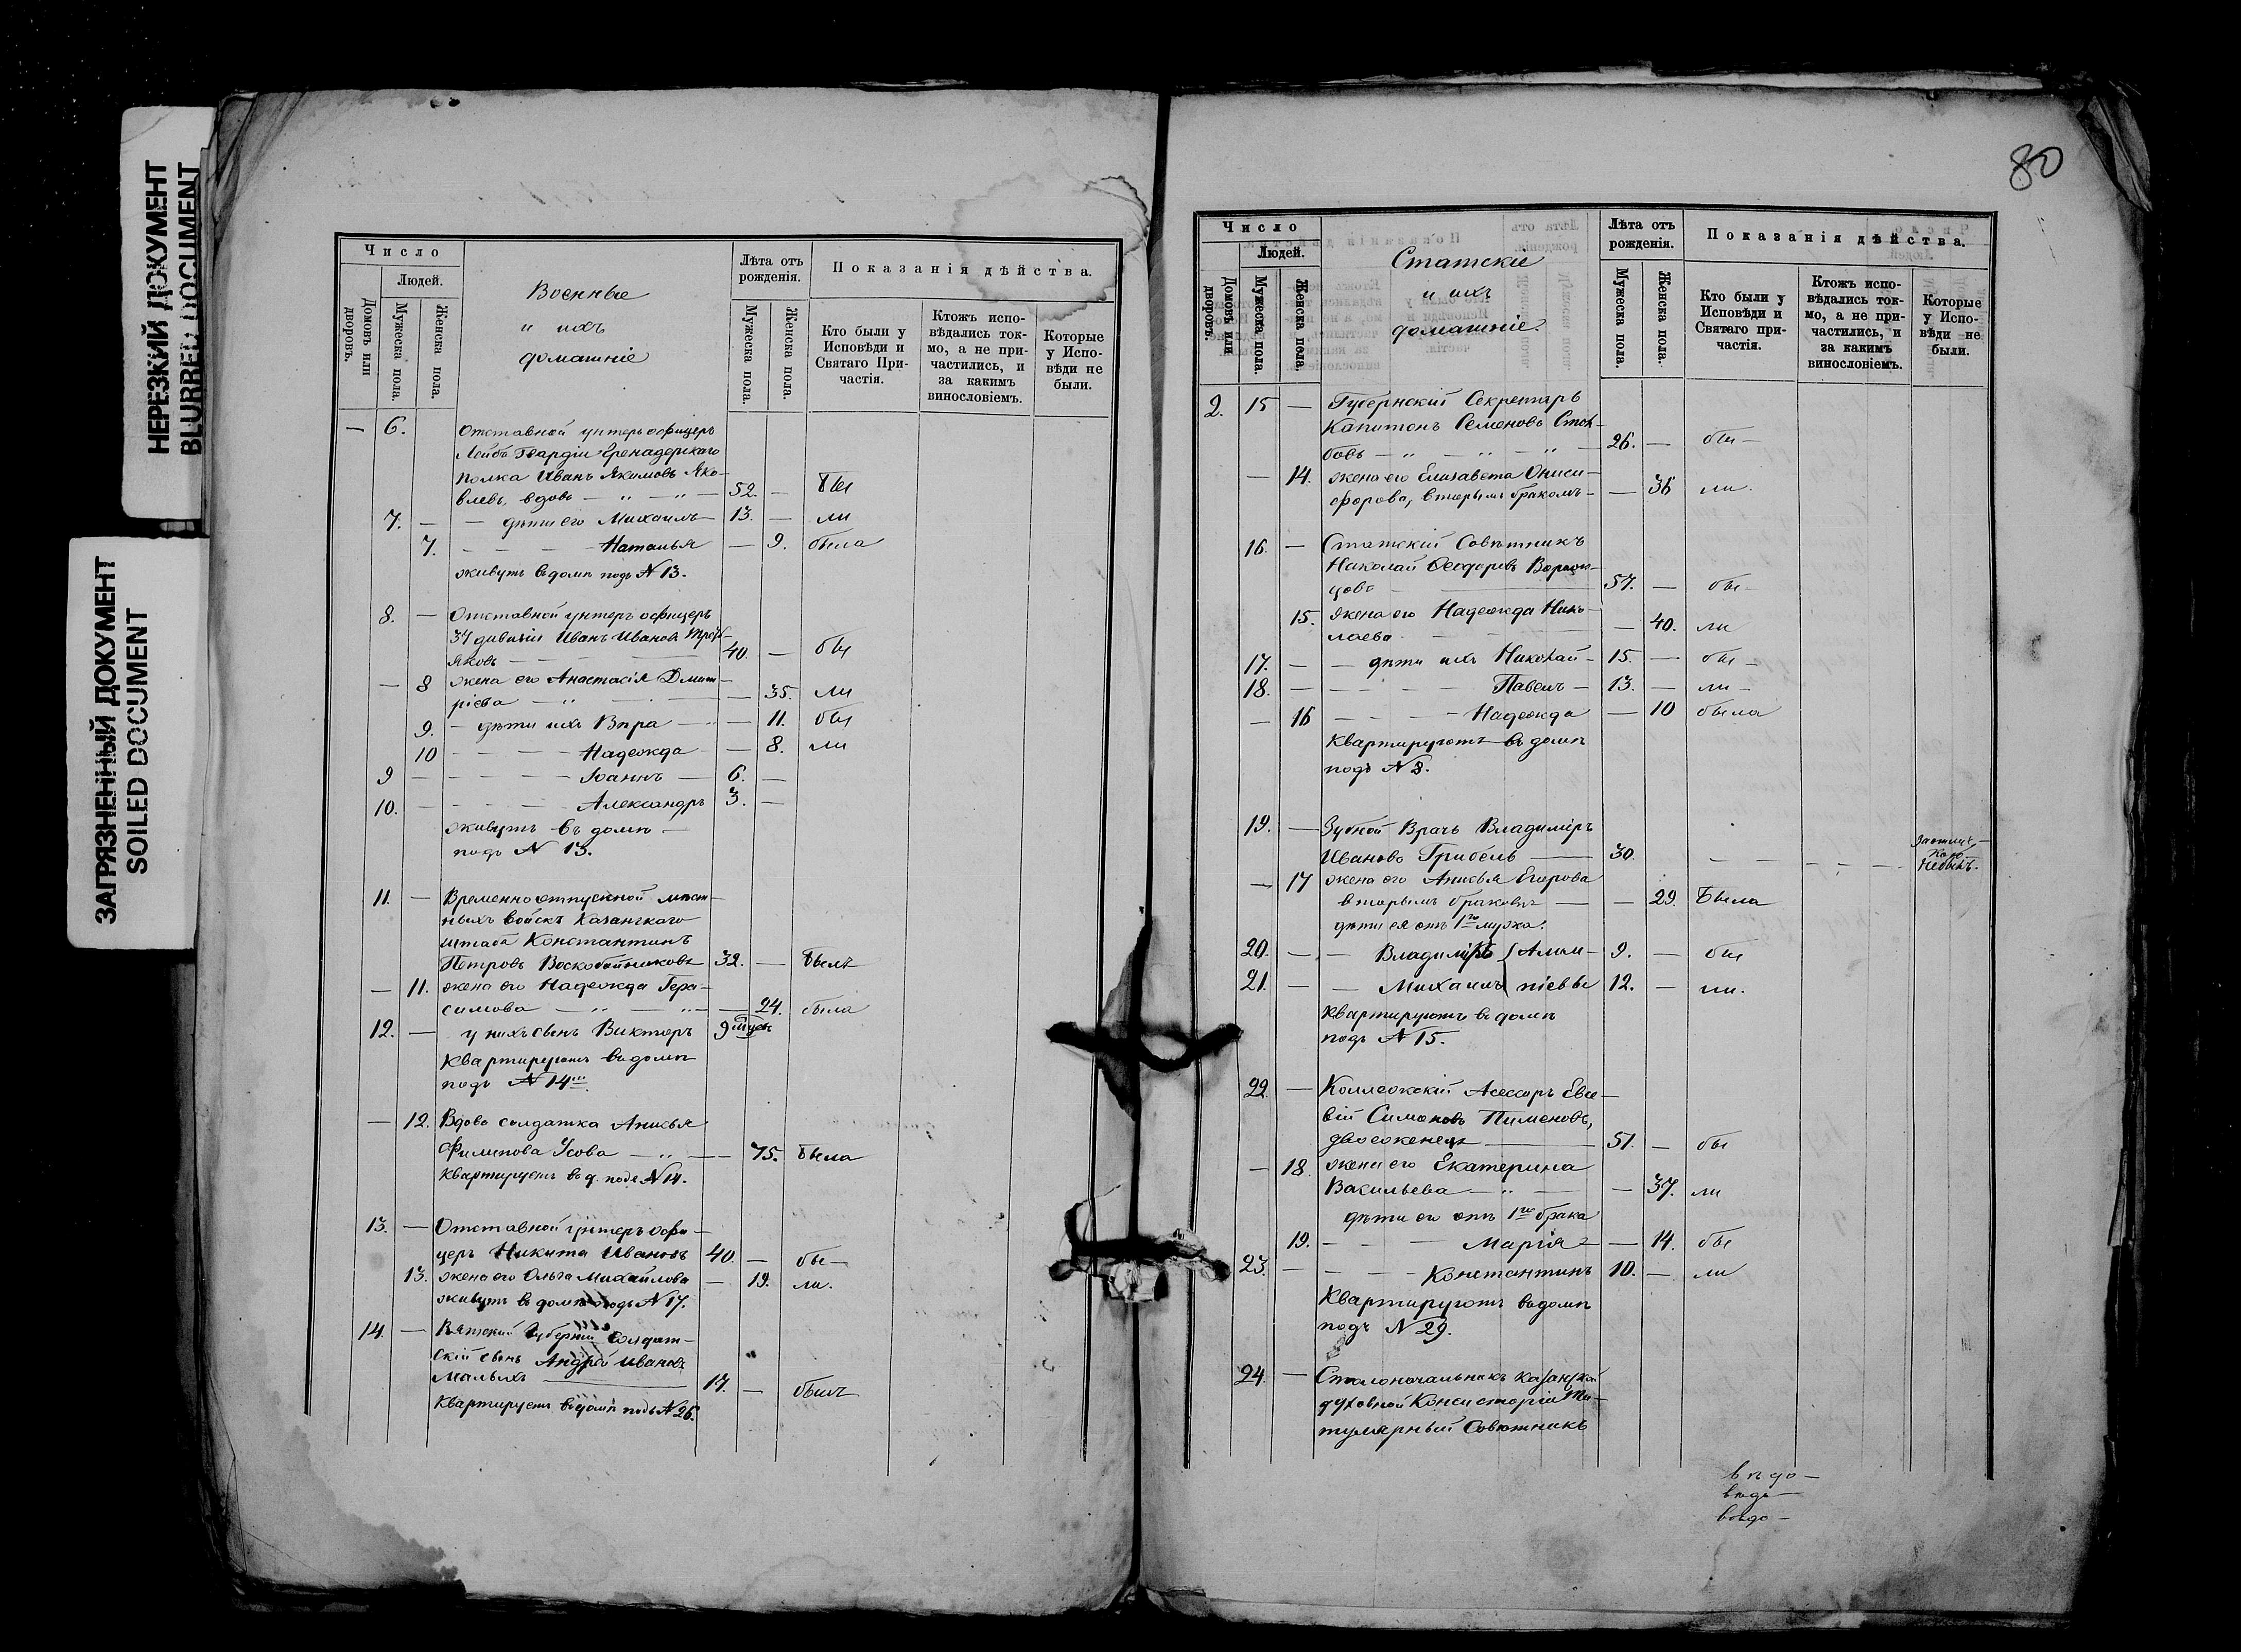 НЕРЕЗКИЙ ДОКУМЕНТ
BLURRED DOCUMENT
ЗАГРЯЗНЕННЫЙ ДОКУМЕНТ
SOILED DOCUMENT
Число
Людей.
Домовъ или дворовъ.
Мужеска пола.
Женска пола.
Военные
и ихъ
домашніе
Лѣта отъ рожденія.
Мужеска пола.
Женска пола.
Показанія дѣйства.
Кто были у Исповѣди и Святаго При-частія.
Ктожъ испо-вѣдались ток-мо, а не при-частились, и за какимъ винословіемъ.
Которые у Испо-вѣди не были.
— 6. Отставной унтеръ офицеръ
Лейбъ Гвардіи Гренадерскаго
полка Иванъ Якимовъ Яко-
влевъ, вдовъ — „ — „ — 52. — бы
7. — — дѣти его Михаилъ — 13. — ли
7. — — — Наталья — 9. была
живутъ въ домѣ подъ N 13.
8. — Отставной унтеръ офицеръ
37 дивизіи Иванъ Ивановъ
40. — бы
— 8 жена его Анастасія Дмит-
ріева — „ — — 35. ли
9. — дѣти ихъ Вѣра — „ — 11. бы
10 — — — Надежда — 8. ли
9 — — — — Іоаннъ — 6. —
10. — — — — Александръ 3. —
живутъ въ домѣ —
подъ N 13.
11. — Временно отпускной мѣст-
ныхъ войскъ Казанскаго
штаба Константинъ
Петровъ Воскобойниковъ 32. — былъ
— 11. жена его Надежда Гера-
симова — „ — „ — 24. была
12. — у нихъ сынъ Викторъ 9
Квартируютъ въ домѣ
подъ N 14
— 12. Вдова солдатка Анисья
Филипова Усова — „ — — 75. была
Квартируетъ въ д. подъ N 14.
13. — Отставной унтеръ офи-
церъ Никита Ивановъ 40. — бы —
13. жена его Ольга Михайлова — 19. ли.
живутъ въ домѣ подъ N 17.
14. — Вятской губерніи Солдат-
скій сынъ Андрей Ивановъ
Малыхъ — 17. — былъ
Квартируетъ въ домѣ подъ N 26.
80
Число
Людей.
Домовъ или дворовъ.
Мужеска пола.
Женска пола.
Статскіе
и ихъ
домашніе.
Лѣта отъ рожденія.
Мужеска пола.
Женска пола.
Показанія дѣйства.
Кто были у Исповѣди и Святаго при-частія.
Ктожъ испо-вѣдались ток-мо, а не при-частились, и за какимъ винословіемъ.
Которые у Испо-вѣди не были.
2. 15 — Губернскій Секретарь
Капитонъ Семеновъ
— „ — „ — „ — 26. — бы —
— 14. жена его Елизавета Ониси-
форова, вторымъ бракомъ — — 36 ли.
16. — Статскій Совѣтникъ
Николай Ѳеодоровъ
57. — бы —
15. жена его Надежда Нико-
лаева — 40. ли
17. — — дѣти ихъ Николай — 15. — бы —
18. — — — — Павелъ — 13. — ли —
— 16 — — — Надежда — 10 была
Квартируютъ въ домѣ
подъ N 8.
19. — Зубной Врачъ Владиміръ
Ивановъ Грибель — 30.
Небылъ.
— 17 жена его Анисья Егорова
вторымъ бракомъ — — 29. была
дѣти ея отъ 1го мужа.
20. — — Владиміръ { Алим- 9. — бы
21. — — Михаилъ { піевы 12. — ли.
Квартируютъ въ домѣ
подъ N 15.
22. — Коллежскій Асессоръ Евсе-
вій Симоновъ Пименовъ,
двоеженецъ — 51. — бы
— 18. жена его Екатерина
Васильева — „ — — 37. ли
дѣти его отъ 1го брака
19. — — — Марія — — 14. бы
23. — — — — Константинъ 10. — ли
Квартируютъ въ домѣ
подъ N 29.
24. — Столоначальникъ Казанской
духовной Консисторіи Ти-
тулярный Совѣтникъ